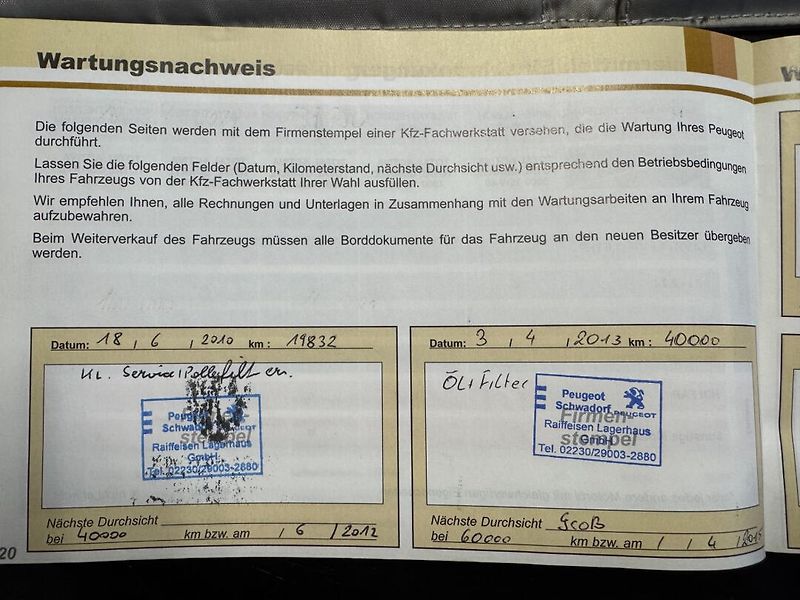 Wartungsnachweis
Die folgenden Seiten werden mit dem Firmenstempel einer Kfz-Fachwerkstatt versehen, die die Wartung Ihres Peugeot
durchführt.
Lassen Sie die folgenden Felder (Datum, Kilometerstand, nächste Durchsicht usw.) entsprechend den Betriebsbedingungen
Ihres Fahrzeugs von der Kfz-Fachwerkstatt Ihrer Wahl ausfüllen.
Wir empfehlen Ihnen, alle Rechnungen und Unterlagen in Zusammenhang mit den Wartungsarbeiten an Ihrem Fahrzeug
aufzubewahren.
Beim Weiterverkauf des Fahrzeugs müssen alle Borddokumente für das Fahrzeug an den neuen Besitzer übergeben
werden.
Datum: 18 / 6 / 2010 km : 19832
Kl. Service
Peugeot
Schwadorf
Firmen-
stempel
Raiffeisen Lagerhaus
GmbH
Tel. 02230/29003-2880
Nächste Durchsicht
bei 40000 km bzw. am / 6 / 2012
Datum: 3 / 4 / 2013 km : 40000
Öl+Filter
Peugeot
Schwadorf
PEUGEOT
Firmen-
stempel
Raiffeisen Lagerhaus
GmbH
Tel. 02230/29003-2880
Nächste Durchsicht Groß
bei 60000 km bzw. am / / 4 / 2015
20